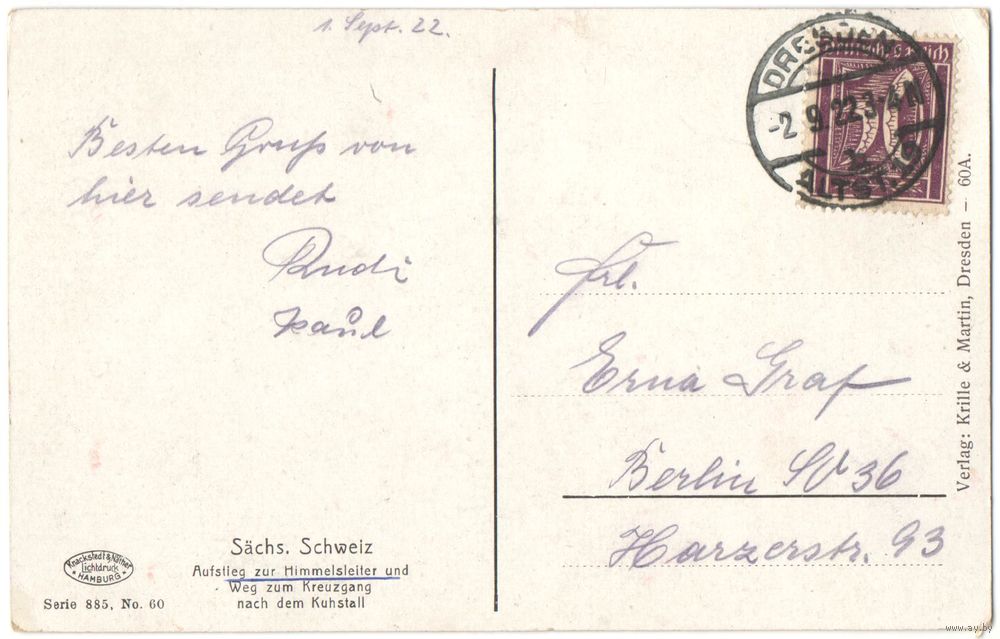 1. Sept. 22.
Besten Gruß von
hier sendet
Rudi
Paul
DRESDEN
-2 9 22 3-4 N
ALTST. 19
Frl.
Erna Graf
Berlin SO 36
Harzerstr. 93
Verlag: Krille & Martin, Dresden — 60A.
Sächs. Schweiz
Aufstieg zur Himmelsleiter und
Weg zum Kreuzgang
nach dem Kuhstall
Knackstedt & Näther
Lichtdruck
HAMBURG
Serie 885, No. 60
www.ay.by